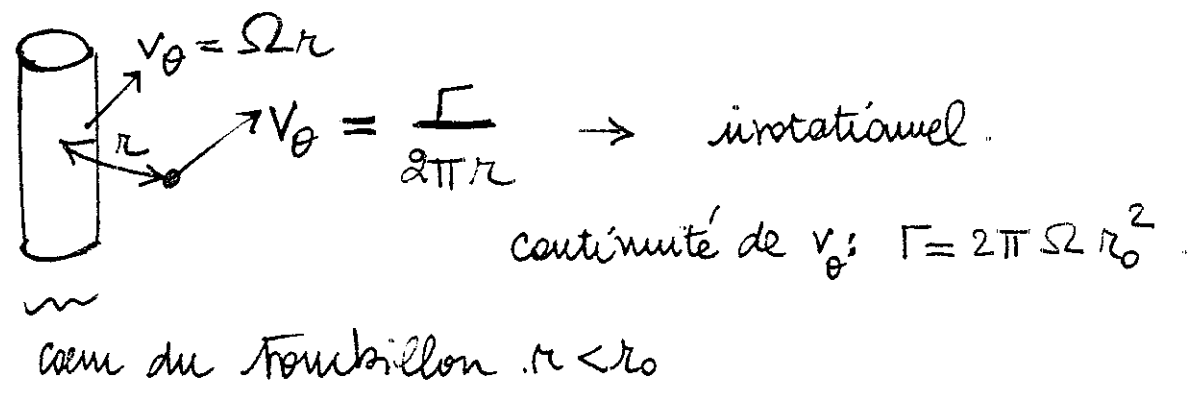 v_θ = Ωr
r
V_θ = Γ / 2πr → irrotationnel.
continuité de v_θ : Γ = 2π Ω r₀².
cœur du tourbillon . r < r₀